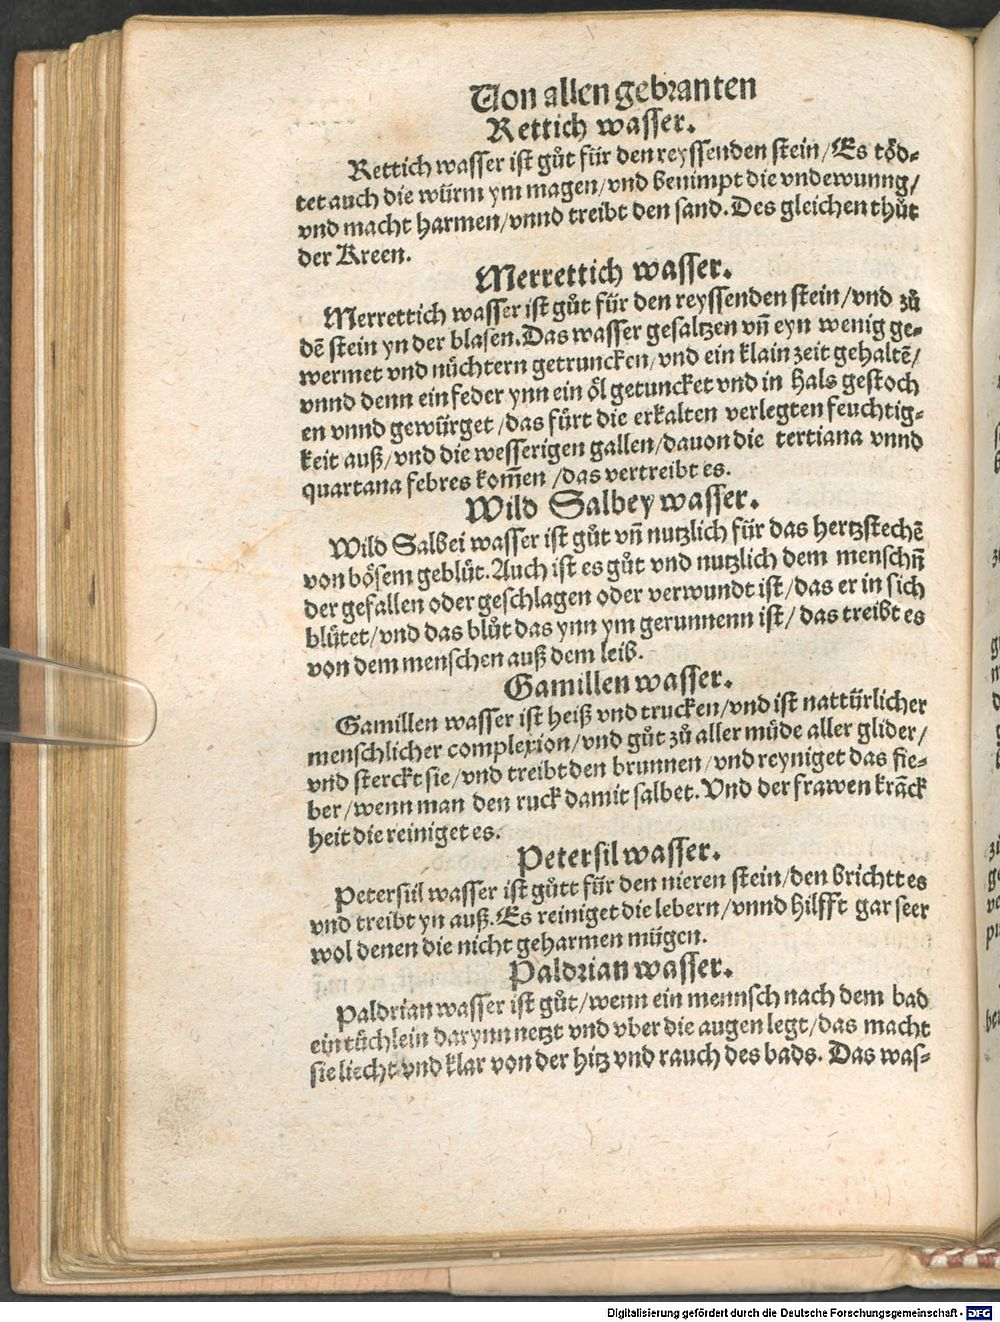 Von allen gebranten
Rettich wasser.
Rettich wasser ist gůt für den reyssenden stein/Es töd-
tet auch die würm ym magen/vnd benimpt die vndewunng/
vnd macht harmen/vnnd treibt den sand. Des gleichen thůt
der Kreen.
Merrettich wasser.
Merrettich wasser ist gůt für den reyssenden stein/vnd zů
dē stein yn der blasen. Das wasser gesaltzen vñ eyn wenig ge-
wermet vnd nüchtern getruncken/vnd ein klain zeit gehaltē/
vnnd denn ein feder ynn ein öl getuncket vnd in hals gestoch
en vnnd gewürget/das fürt die erkalten verlegten feuchtig-
keit auß/vnd die wesserigen gallen/dauon die tertiana vnnd
quartana febres kom̄en/das vertreibt es.
Wild Salbey wasser.
Wild Salbei wasser ist gůt vñ nutzlich für das hertzstechē
von bösem geblüt. Auch ist es gůt vnd nutzlich dem menschñ
der gefallen oder geschlagen oder verwundt ist/das er in sich
blůtet/vnd das blůt das ynn ym gerunnenn ist/das treibt es
von dem menschen auß dem leib.
Gamillen wasser.
Gamillen wasser ist heiß vnd trucken/vnd ist nattürlicher
menschlicher complexion/vnd gůt zů aller müde aller glider/
vnd sterckt sie/vnd treibt den brunnen/vnd reyniget das fie-
ber/wenn man den ruck damit salbet. Vnd der frawen krāck
heit die reiniget es.
Petersil wasser.
Petersiil wasser ist gůtt für den nieren stein/den brichtt es
vnd treibt yn auß. Es reiniget die lebern/vnnd hilfft gar seer
wol denen die nicht geharmen mügen.
Paldrian wasser.
Paldrian wasser ist gůt/wenn ein mennsch nach dem bad
ein tüchlein darynn netzt vnd vber die augen legt/das macht
sie liecht vnd klar von der hitz vnd rauch des bads. Das was-
Digitalisierung gefördert durch die Deutsche Forschungsgemeinschaft - DFG